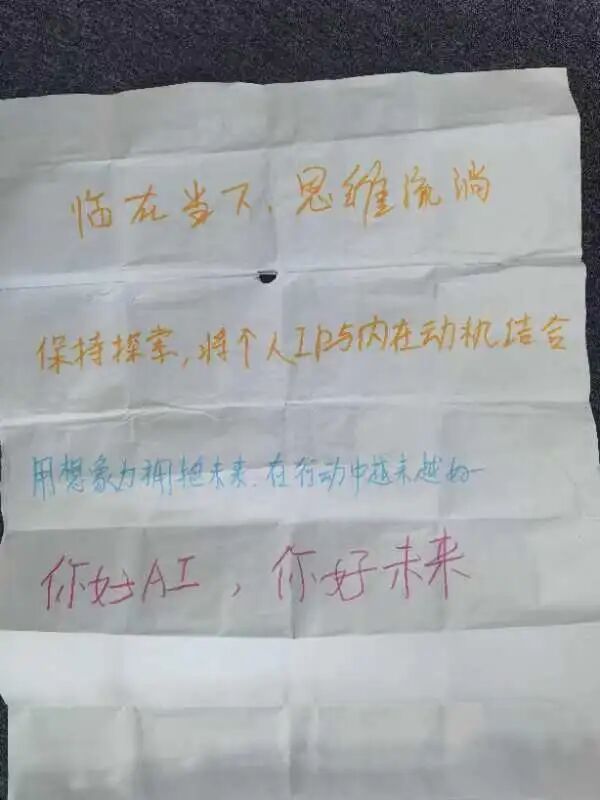 临在当下、思维流淌
保持探索,将个人IP与内在动机结合
用想象力拥抱未来.在行动中越来越
你好AI,你好未来